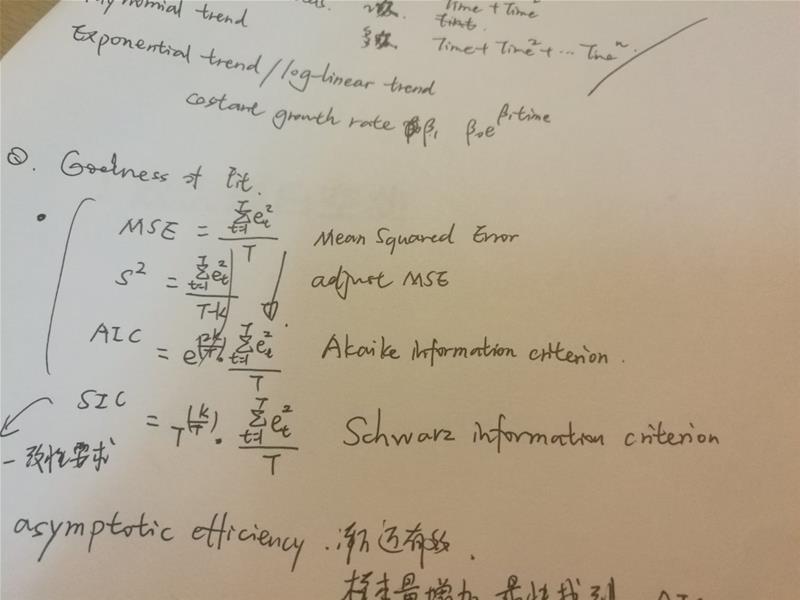 nomial trend
2次 Time + Time²
多次 Time + Time² + ... Time^n.
Exponential trend / log-linear trend
costant growth rate β₁ β₀e^β₁time
②. Goodness of Fit.
MSE = Σ_{t=1}^{T} e_t² / T Mean Squared Error
S² = Σ_{t=1}^{T} e_t² / T-k adjust MSE
AIC = e^(2k/T) · Σ_{t=1}^{T} e_t² / T Akaike information criterion.
SIC = T^(k/T) · Σ_{t=1}^{T} e_t² / T Schwarz information criterion
一致性要求
asymptotic efficiency. 渐近有效.
样本量增加